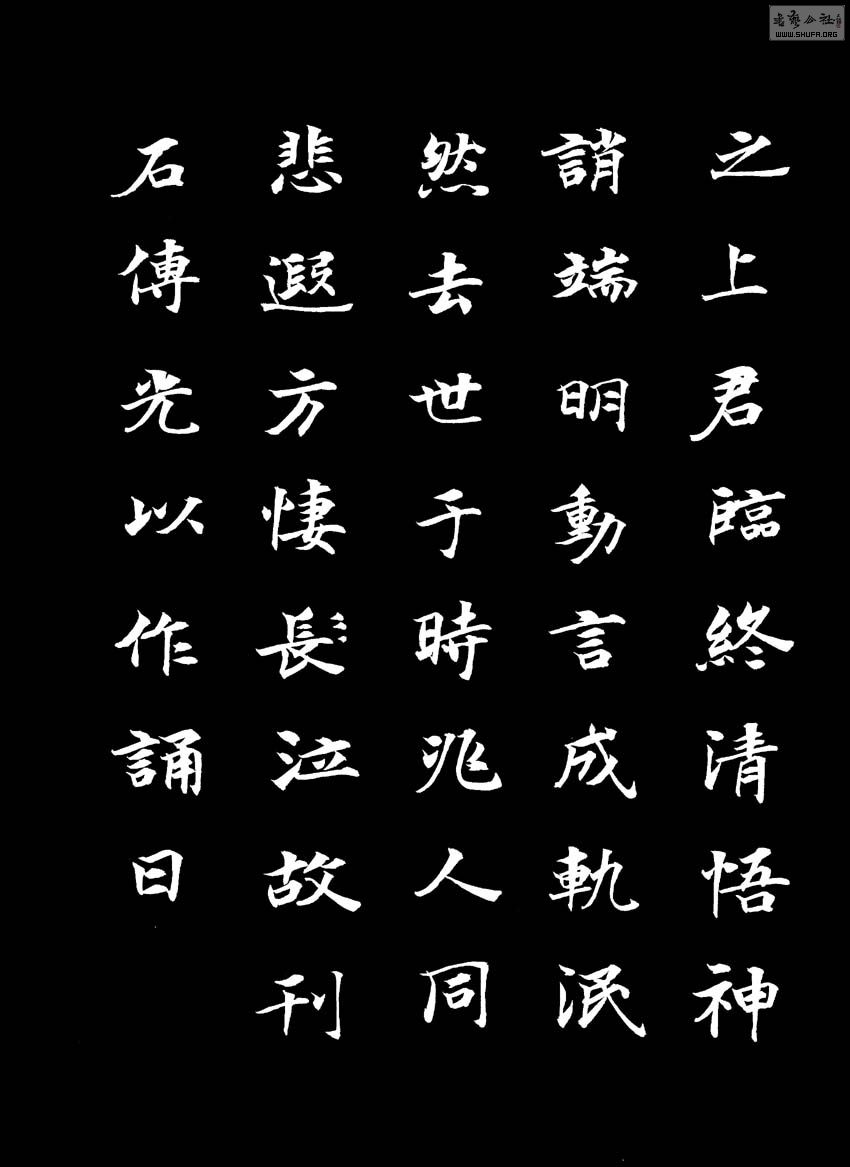 之上君臨終清悟神
誚端明動言成軌泯
然去世于時兆人同
悲遐方悽長泣故刊
石傳光以作誦曰
书艺公社
WWW.SHUFA.ORG